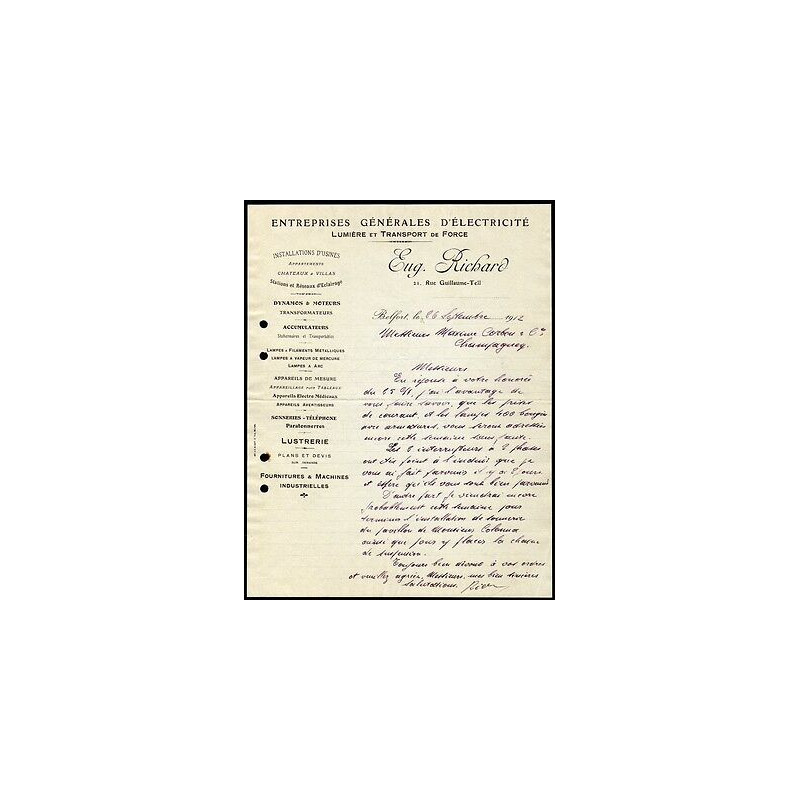 ENTREPRISES GÉNÉRALES D'ÉLECTRICITÉ
LUMIÈRE ET TRANSPORT DE FORCE
INSTALLATIONS D'USINES
APPARTEMENTS
CHATEAUX & VILLAS
Stations et Réseaux d'Eclairage
DYNAMOS & MOTEURS
TRANSFORMATEURS
ACCUMULATEURS
Stationnaires et Transportables
LAMPES A FILAMENTS MÉTALLIQUES
LAMPES A VAPEUR DE MERCURE
LAMPES A ARC
APPAREILS DE MESURE
APPAREILLAGE POUR TABLEAUX
Appareils Electro Médicaux
APPAREILS AVERTISSEURS
SONNERIES - TÉLÉPHONE
Paratonnerres
LUSTRERIE
PLANS ET DEVIS
SUR DEMANDE
FOURNITURES & MACHINES
INDUSTRIELLES
Eug. Richard
21, RUE GUILLAUME-TELL
Belfort, le 26 Septembre 1912
Messieurs Maxime Corbon & Cie
Champagney
Messieurs
En réponse à votre honorée
du 25 j'ai l'avantage de
vous faire savoir, que les prises
de courant, et les lampes 400 bougies
avec armatures, vous seront adressées
encore cette semaine sans faute.
Les 2 interrupteurs à 2 phases
ont été joint à l'enduit que je
vous ai fait parvenir il y a 2 jours
et espère qu'ils vous sont bien parvenus
D'autre part je viendrai encore
probablement cette semaine pour
terminer l'installation de sonnerie
du pavillon de Monsieur Colonna
ainsi que pour y placer la
de suspension.
Toujours bien dévoué à vos ordres
et veuillez agréer, Messieurs, mes bien sincères
salutations.